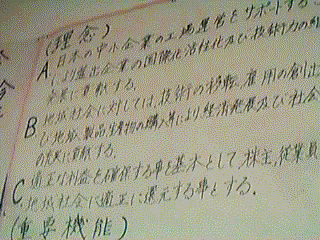 (理念)
A. 日本の中小企業の工場運営をサポートする
により進出企業の国際化活性化及び技術力の
発展に貢献する。
B. 地域社会に対しては、技術の移転、雇用の創出
び地域製品生産物の購入等により経済発展及び社会
の発展に貢献する。
C. 適正な利益を確保する事を基本として、株主、従業員
地域社会に適正に還元する事とする。
(重要機能)